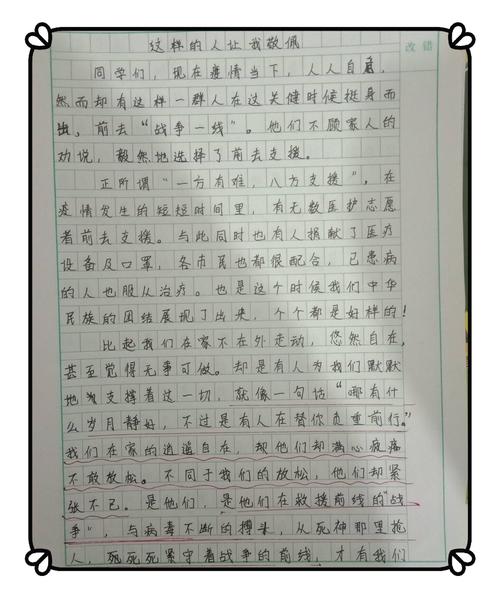 这样的人让我敬佩
改 错
同学们，现在疫情当下，人人自危，
然而却有这样一群人在这关健时候挺身而
出，前去“战争一线”。他们不顾家人的
劝说，毅然地选择了前去支援。
正所谓“一方有难，八方支援”，在
疫情发生的短短时间里，有无数医护志愿
者前去支援。与此同时也有人捐献了医疗
设备及口罩，各市民也都很配合，已患病
的人也服从治疗。也是这个时候我们中华
民族的团结展现了出来，个个都是好样的！
比起我们在家不在外走动，悠然自在，
甚至觉得无事可做。却是有人为我们默默
地支撑着这一切，就像一句话“哪有什
么岁月静好，不过是有人在替你负重前行。”
我们在家的逍遥自在，却他们却满心疲惫
不敢放松。不同于我们的放松，他们却紧
张不已。是他们，是他们在救援前线的“战
争”，与病毒不断的搏斗，从死神那里抢
人，死死死紧守着战争的前线，才有我们